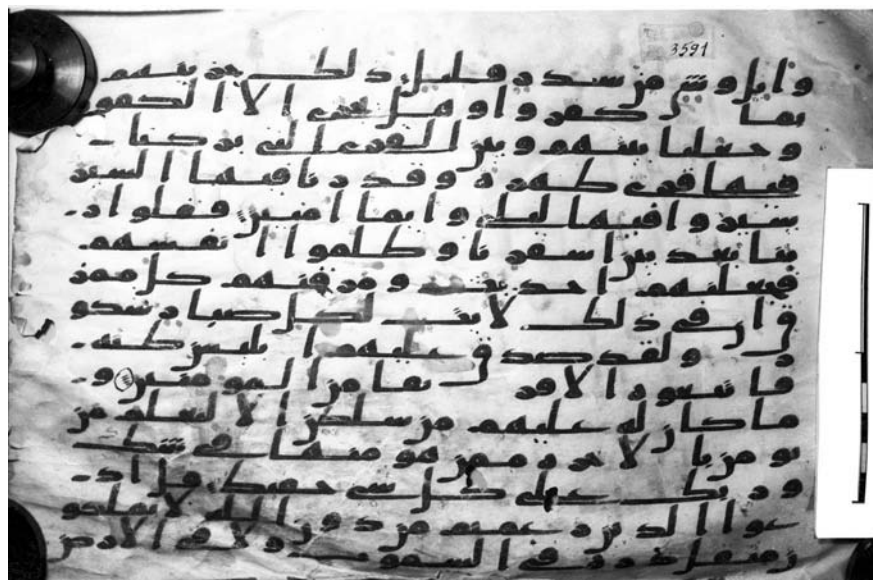 3591
واثل وشى من سدر قليل ذلك جزينهم
بما كفروا وهل نجزى الا الكفور
وجعلنا بينهم وبين القرى التى بركنا
فيها قرى ظهرة وقدرنا فيها السير
سيروا فيها ليلى واياما امنين فقلوا ر
بنا بعد بين اسفرنا وظلموا انفسهم
فجعلنهم احديث ومزقنهم كل ممز
ق ان فى ذلك لايت لكل صبار شكو
ر ولقد صدق عليهم ابليس ظنه
فاتبعوه الا فريقا من المومنين و
ما كان له عليهم من سلطن الا لنعلم من
يومن بالاخرة ممن هو منها فى شك
وربك على كل شى حفيظ قل اد
عوا الذين زعمتم من دون الله لا يملكو
ن مثقل ذرة فى السموت ولا فى الارض